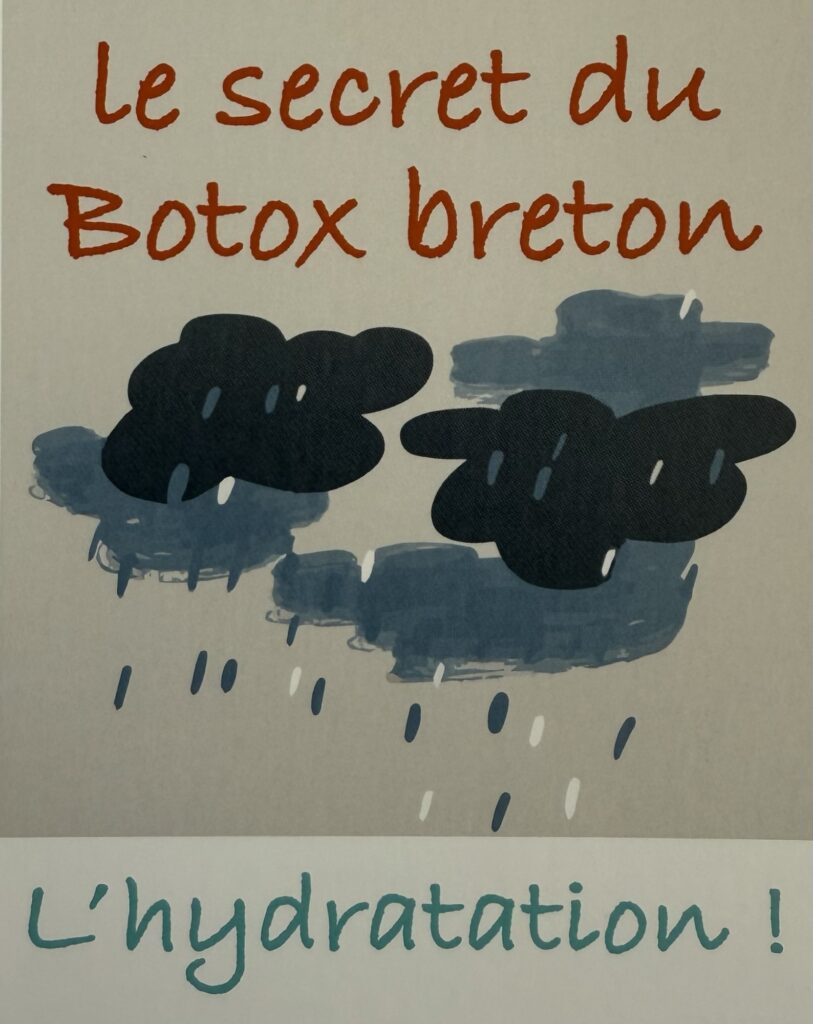 le secret du
Botox breton
L'hydratation !